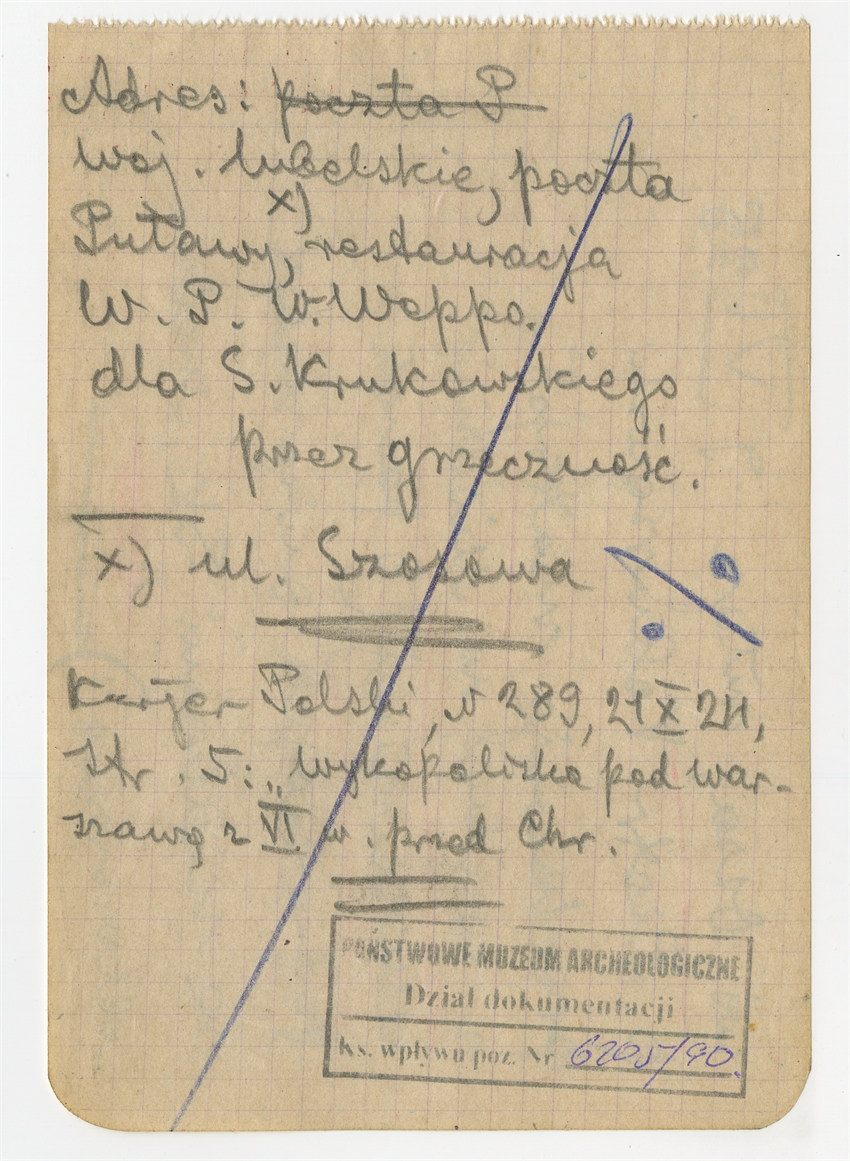 Adres: poczta P
woj. lubelskie, poczta
x)
Puławy, restauracja
W. P. W. Weppo.
dla S. Krukowskiego
przez grzeczność.
x) ul. Szosowa
Kurjer Polski, N 289, 21 X 24,
str. 5: „wykopaliska pod war-
szawą z VI w. przed Chr.
PAŃSTWOWE MUZEUM ARCHEOLOGICZNE
Dział dokumentacji
Ks. wpływu poz. Nr 6205/90.